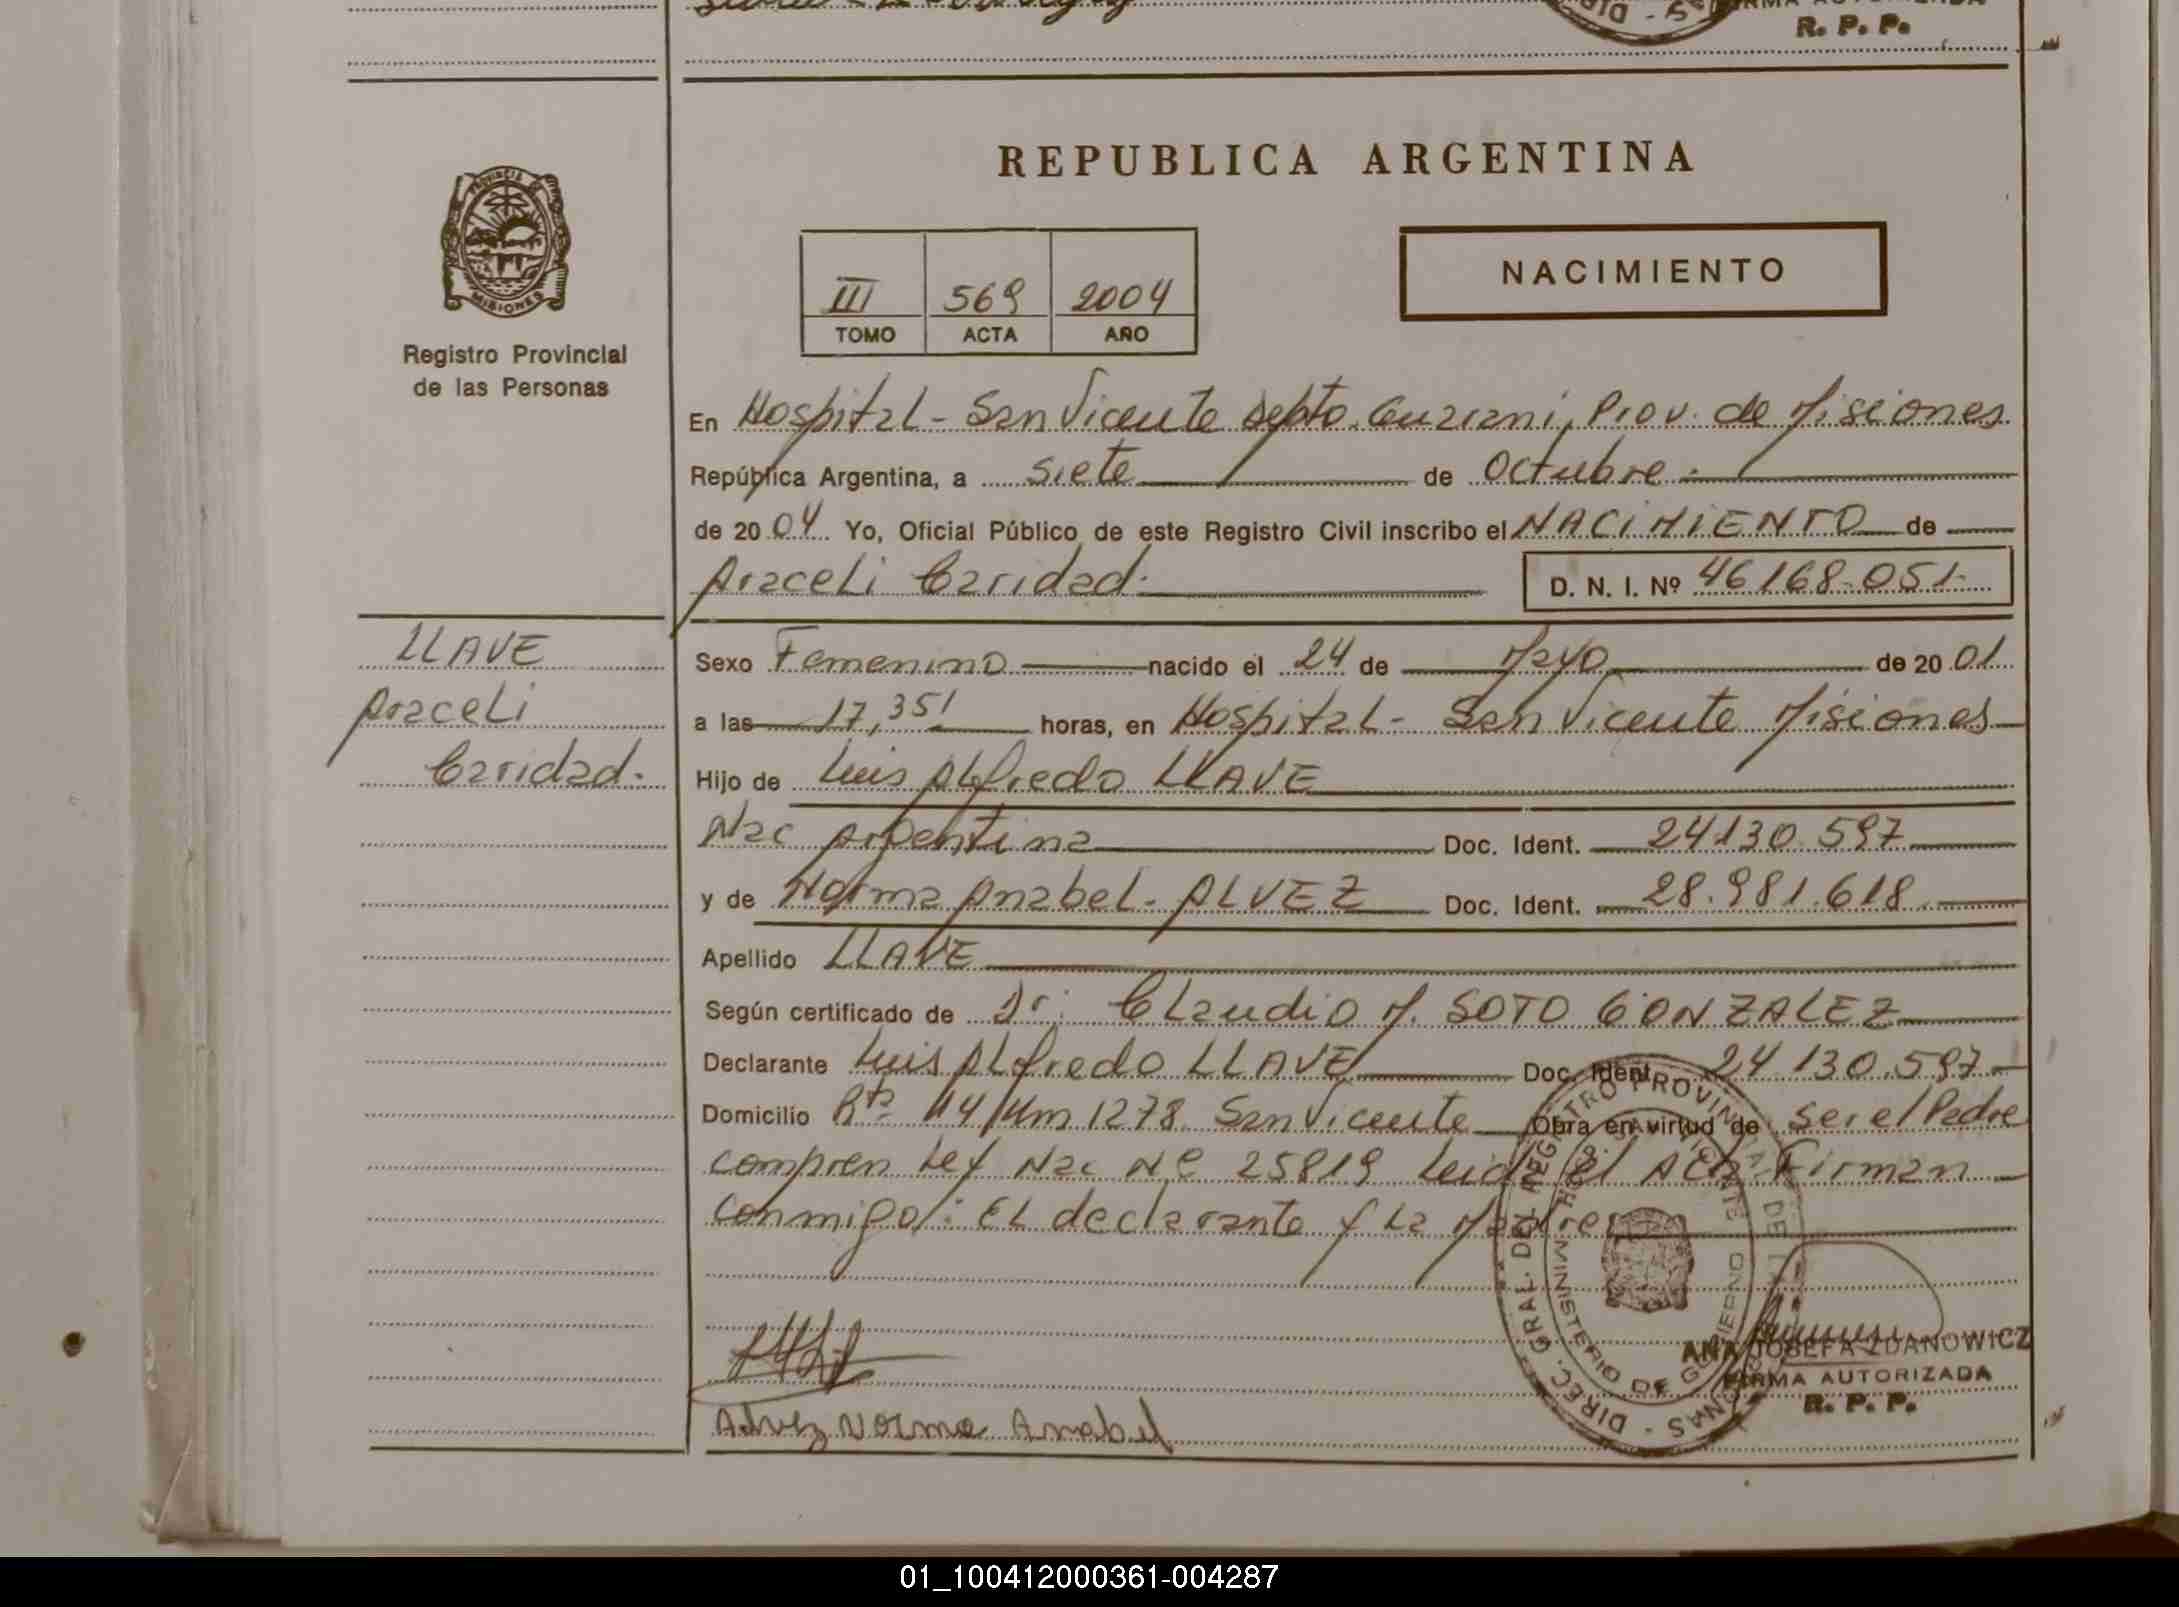 R. P. P.
PROVINCIA DE
MISIONES
Registro Provincial
de las Personas
REPUBLICA ARGENTINA
NACIMIENTO
III 569 2004
TOMO ACTA AÑO
En Hospital - San Vicente Depto. Guarani, Prov. de Misiones
República Argentina, a siete de Octubre.
de 2004 Yo, Oficial Público de este Registro Civil inscribo el NACIMIENTO de
Araceli Caridad. D. N. I. Nº 46168.051.
LLAVE
Araceli
Caridad.
Sexo Femenino nacido el 24 de Mayo de 2001
a las 17,35' horas, en Hospital - San Vicente Misiones
Hijo de Luis Alfredo LLAVE
Nac Argentina Doc. Ident. 24130.597
y de Norma Anabel - ALVEZ Doc. Ident. 28.981.618
Apellido LLAVE
Según certificado de Dr. Claudio M. SOTO GONZALEZ
Declarante Luis Alfredo LLAVE Doc. Ident. 24130.597
Domicilio Rta 14 Km 1278 San Vicente Obra en virtud de ser el Padre
compren Ley Nac Nº 25819 Leida el Acta Firman
conmigo: El declarante y La Madre
Alvez Norma Anabel
DIREC. GRAL. DEL REGISTRO PROVINCIAL DE LAS PERSONAS
MINISTERIO DE GOBIERNO
ANA JOSEFA ZDANOWICZ
FIRMA AUTORIZADA
R. P. P.
01_100412000361-004287